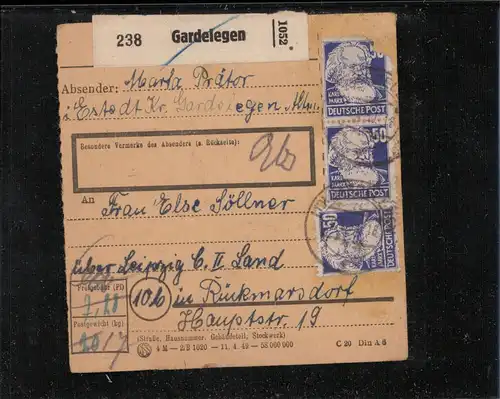 238 Gardelegen 1052 *
Absender: Marta Prätor
Estedt Kr. Gardelegen Altm.
KARL MARX
DEUTSCHE POST
Besondere Vermerke des Absenders (s. Rückseite):
50
KARL MARX
DEUTSCHE POST
An Frau Else Söllner
50
KARL MARX
DEUTSCHE POST
über Leipzig C. II Land
(PI)
10b in Rückmarsdorf
Postgewicht (kg)
Hauptstr. 19
(Straße, Hausnummer, Gebäudeteil, Stockwerk)
4 M — 2/B 1620 — 11. 4. 49 — 58 000 000
C 20 Din A 6